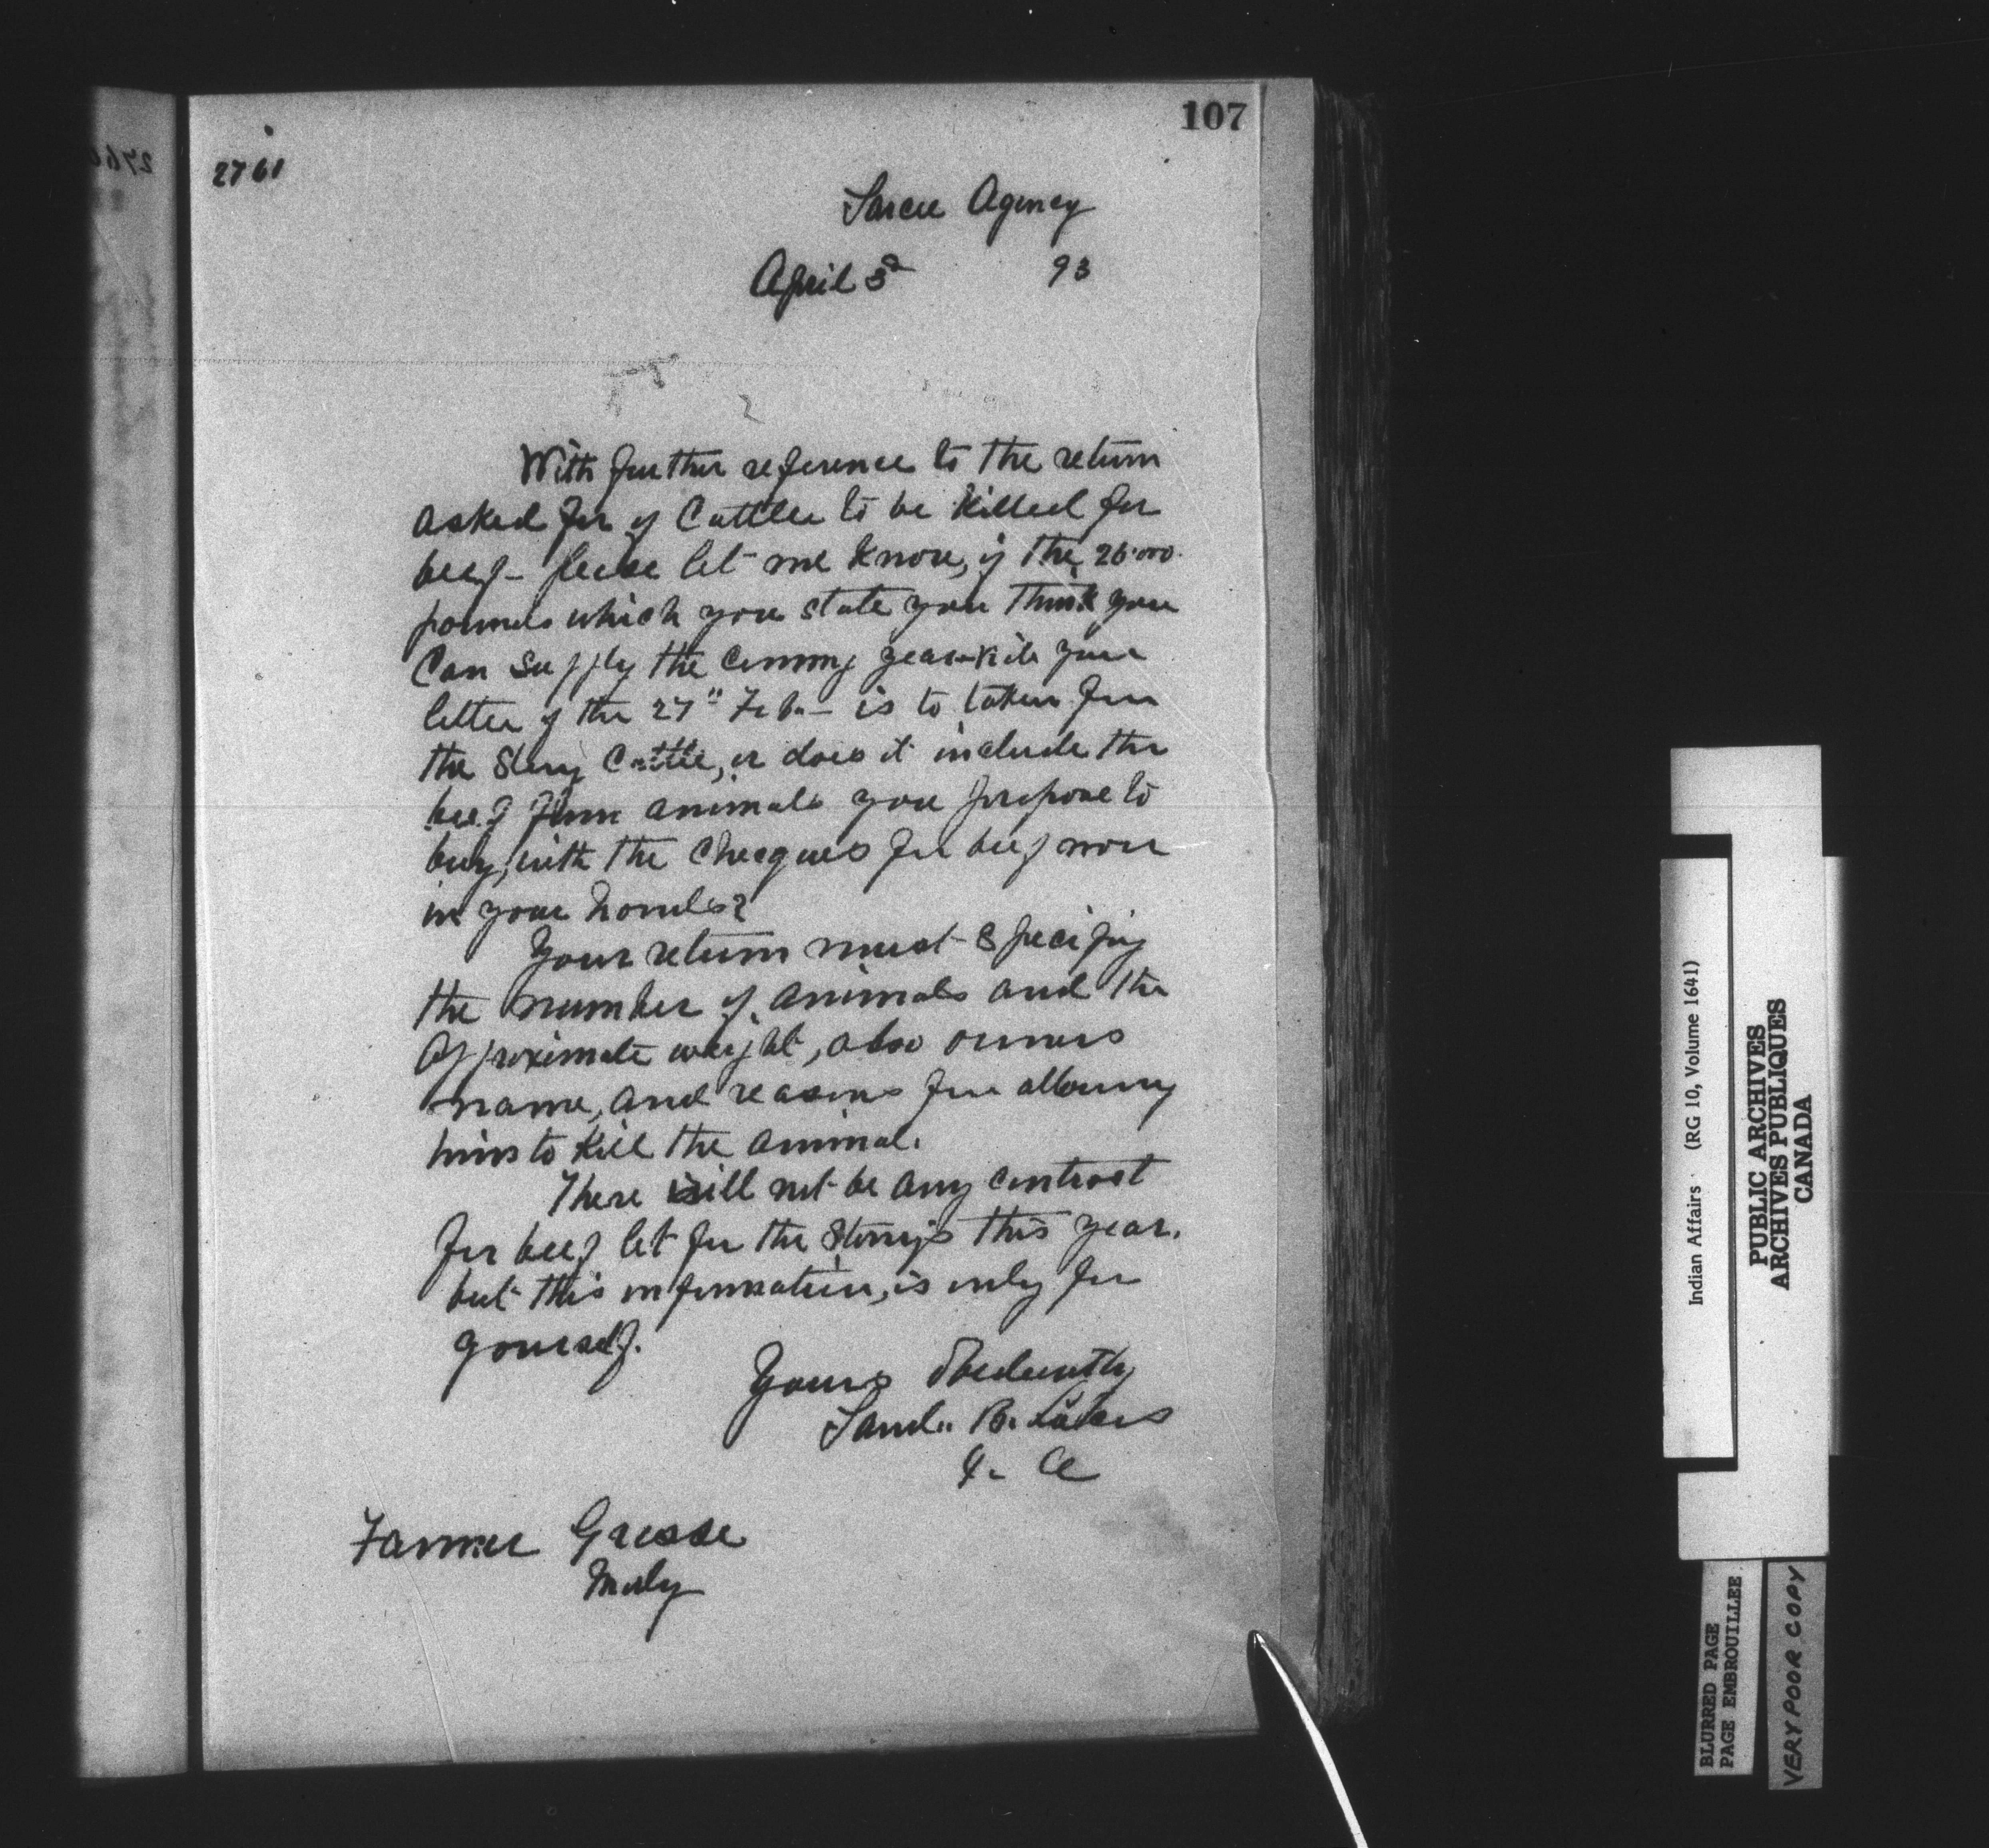 107
2761
Sarcee Agency
April 3d 93
With further reference to the return
asked for of Cattle to be killed for
beef - please let me know, if the 26.000
pounds which you state you think you
Can supply the coming year - vide your
letter of the 27" Feb. - is to taken from
the Stony Cattle, or does it include the
beef from animals you propose to
buy, with the Cheques for beef now
in your hands?
Your return must specify
the number of animals and the
Approximate weight, also owners
name, and reasons for allowing
him to kill the animal.
There will not be any contract
for beef let for the Stonys this year.
but this information, is only for
yourself.
Yours Obediently
Saml. B. Lucas
I. A
Farmer Grasse
Morley
Indian Affairs (RG 10, Volume 1641)
PUBLIC ARCHIVES
ARCHIVES PUBLIQUES
CANADA
BLURRED PAGE
PAGE EMBROUILLEE
VERY POOR COPY